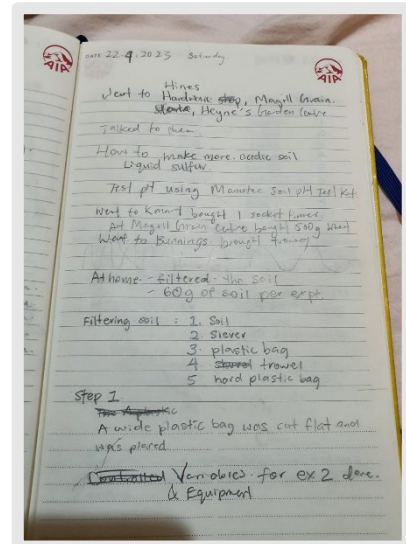 AIA
AIA
DATE 22.4.2023 Saturday
Hines
Went to Hardware shop, Magill Grain.
Heyne's Garden Centre
Talked to them
How to make more acidic soil
Liquid sulfur
Test pH using Manutec Soil pH Test Kit
Went to Kmart bought 1 socket timer.
At Magill Grain Centre bought 500g wheat
Went to Bunnings bought trowel
At home - filtered the soil
- 60g of soil per expt.
Filtering soil : 1. Soil
2. Siever
3. plastic bag
4 trowel
5 hard plastic bag
Step 1
A wide plastic bag was cut flat and
was placed
Controlled Variables for ex 2 done.
& Equipment